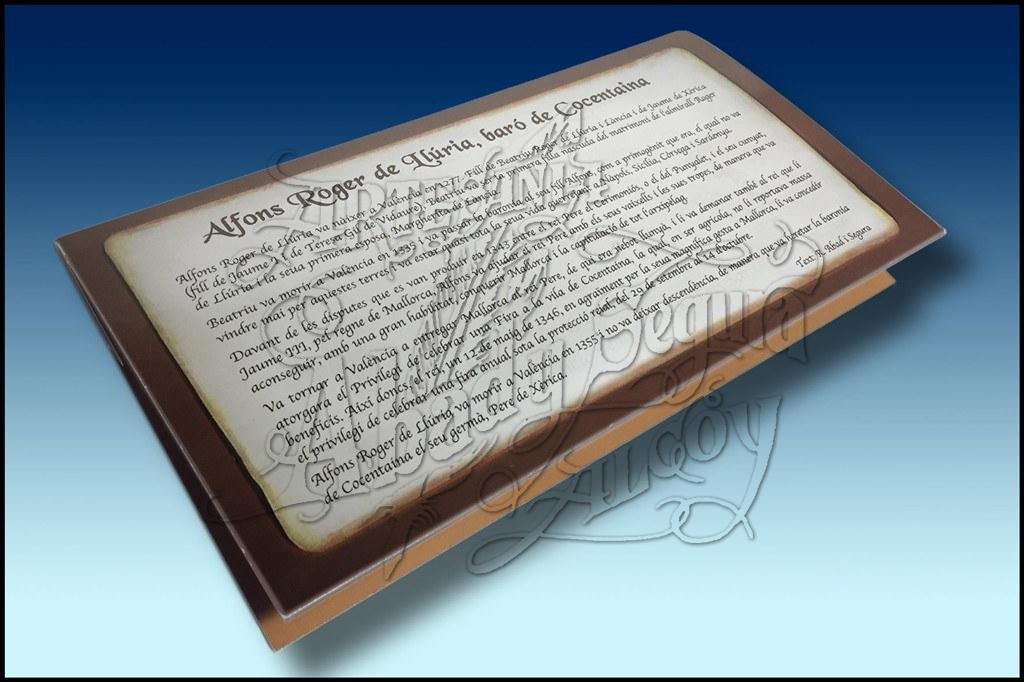 Alfons Roger de Llúria, baró de Cocentaina
Alfons Roger de Llúria va nàixer a València l'any 1277. Fill de Beatriu Roger de Llúria i Lància i de Jaume de Xèrica
(fill de Jaume I i de Teresa Gil de Vidaure). Beatriu va ser la primera filla nascuda del matrimoni de l'almirall Roger
de Llúria i la seua primera esposa, Margarida de
Beatriu va morir a València en i va passar la baronia al seu fill Alfons, com a primogènit que era, el qual no va
vindre mai per aquestes terres i va estar quasi tota la seua vida guerrejant a Nàpols, Sicília, Còrsega i Sardenya.
Davant de les disputes que es van produir en 1343 entre el rei Pere el Cerimoniós, o el del Punyalet, i el seu cunyat,
Jaume III, pel regne de Mallorca, Alfons va ajudar el rei Pere amb els seus vaixells i les sues tropes, de manera que va
aconseguir, amb una gran habilitat, conquerir Mallorca i la capitulació de tot l'arxipèlag.
Va tornar a València a entregar Mallorca al rei Pere, de qui era nebot llunyà, i li va demanar també al rei que li
atorgara el Privilegi de celebrar una fira a la vila de Cocentaina, la qual, en ser agrícola, no li reportava massa
beneficis. Així doncs, el rei, un 12 de maig de 1346, en agraïment per la seua magnífica gesta a Mallorca, li va concedir
el privilegi de celebrar una fira anual, sota la protecció reial, del 29 de setembre al 14 d'octubre.
Alfons Roger de Llúria va morir a València en 1355 i no va deixar descendència, de manera que va heretar la baronia
de Cocentaina el seu germà, Pere de Xèrica.
Text: R. Abad i Segura
Artesanía
Abad y Segura
Alcoy